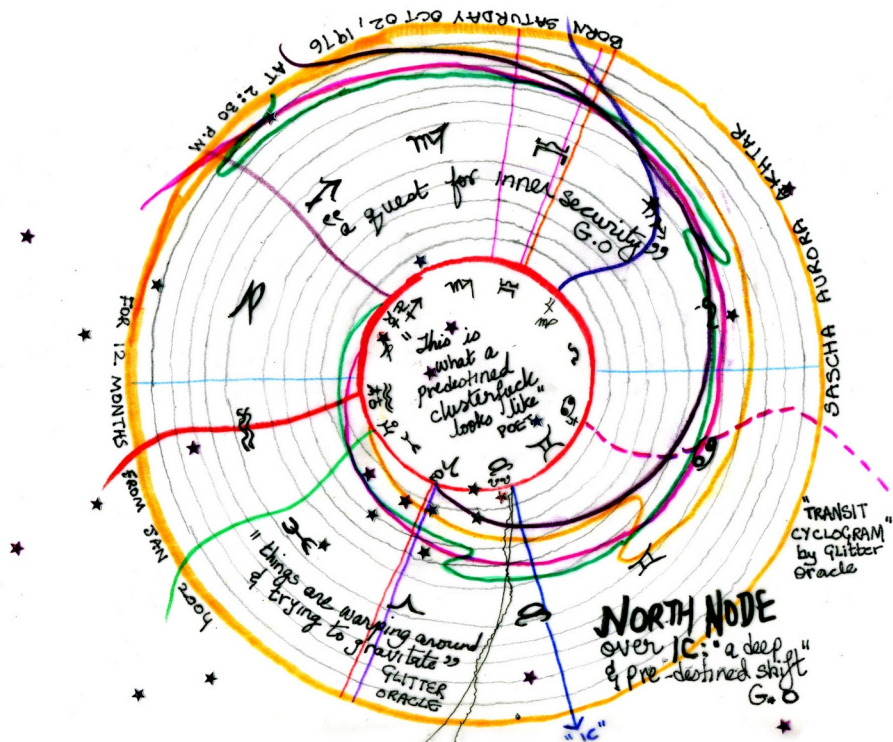 BORN SATURDAY OCT 02, 1976
AT 2:30 P.M
SASCHA AURORA AKHTAR
FOR 12 MONTHS FROM JAN 2004
"a quest for inner security"
G.O
"This is
what a
predestined
clusterfuck
looks like"
POET
"things are warping around
& trying to gravitate"
GLITTER
ORACLE
"TRANSIT
CYCLOGRAM"
by Glitter
Oracle
NORTH NODE
over IC: "a deep
& pre-destined shift"
G.O
"IC"